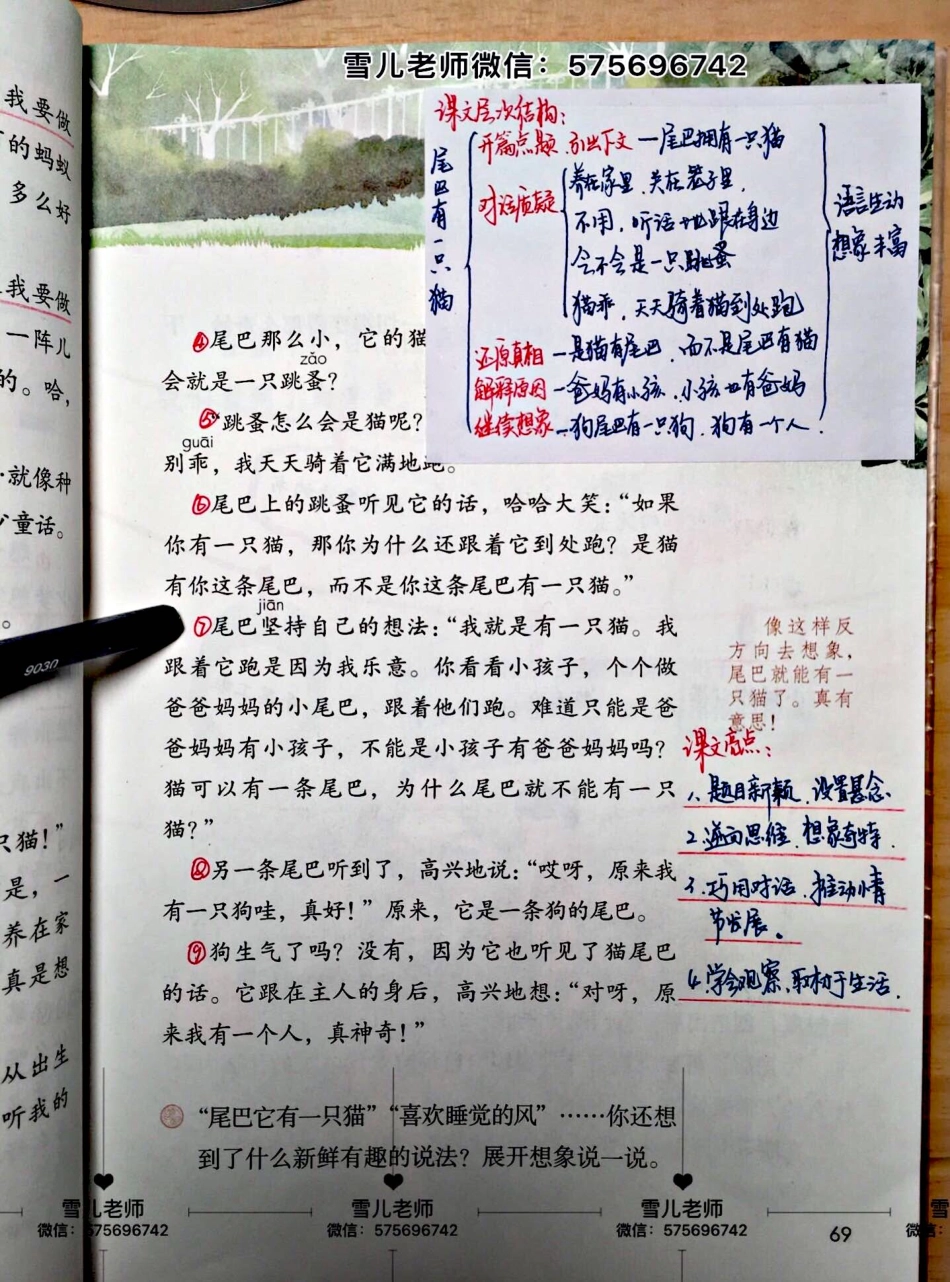 雪儿老师微信：575696742
我要做
的蚂蚁
多么好
我要做
一阵儿
的。哈，
就像种
童话。
只猫！”
是，一
养在家
真是想
从出生
听我的
课文层次结构：
尾巴有一只猫
开篇点题、引出下文—尾巴拥有一只猫
对话质疑
养在家里、关在笼子里、
不用，听话地跟在身边
会不会是一只跳蚤
猫乖，天天骑着猫到处跑
还原真相—是猫有尾巴，而不是尾巴有猫
解释原因—爸妈有小孩、小孩也有爸妈
继续想象—狗尾巴有一只狗、狗有一个人.
语言生动
想象丰富
④尾巴那么小，它的猫
zǎo
会就是一只跳蚤？
⑤“跳蚤怎么会是猫呢？
guāi
别乖，我天天骑着它满地跑。
⑥尾巴上的跳蚤听见它的话，哈哈大笑：“如果
你有一只猫，那你为什么还跟着它到处跑？是猫
有你这条尾巴，而不是你这条尾巴有一只猫。”
jiān
⑦尾巴坚持自己的想法：“我就是有一只猫。我
跟着它跑是因为我乐意。你看看小孩子，个个做
爸爸妈妈的小尾巴，跟着他们跑。难道只能是爸
爸妈妈有小孩子，不能是小孩子有爸爸妈妈吗？
猫可以有一条尾巴，为什么尾巴就不能有一只
猫？”
⑧另一条尾巴听到了，高兴地说：“哎呀，原来我
有一只狗哇，真好！”原来，它是一条狗的尾巴。
⑨狗生气了吗？没有，因为它也听见了猫尾巴
的话。它跟在主人的身后，高兴地想：“对呀，原
来我有一个人，真神奇！”
9030
像这样反
方向去想象，
尾巴就能有一
只猫了。真有
意思！
课文亮点：
1、题目新颖、设置悬念.
2、逆向思维、想象奇特.
3、巧用对话、推动情
节发展。
4、学会观察、取材于生活.
“尾巴它有一只猫”“喜欢睡觉的风”……你还想
到了什么新鲜有趣的说法？展开想象说一说。
雪儿老师
微信：575696742
雪儿老师
微信：575696742
雪儿老师
微信：575696742
69
雪
微信：